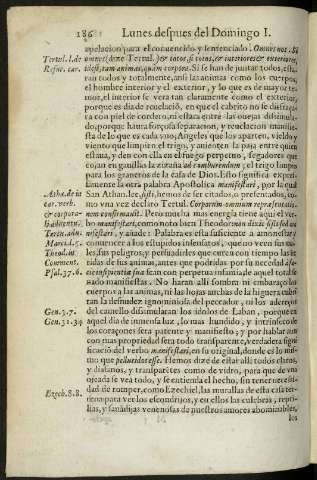 186 Lunes despues del Domingo I.
apelacion para el conuencido y sentenciado. Omnes nos. Si
omnes (dixo Tertul.) & totos, si totos, & interiores & exteriores,
idest, tam animas, quàm corpora. Si se han de juntar todos, esta-
ran todos y totalmente, ansi las animas como los cuerpos,
el hombre interior y el exterior, y lo que es de mayor te-
mor, el interior se vera tan claramente como el exterior,
porque es dia de reuelacion, en que el cabrito no se disfraça-
ra con piel de cordero, ni estara entre las ouejas dissimula-
do, porque haura forçosa separacion, y reuelacion manifies-
ta de lo que es cada vno, Angeles que los aparten, vieldo y
viento que limpien el trigo, y auienten la paja entre quien
estaua, y den con ella en el fuego perpetuo, segadores que
cojan en gauillas la zizaña ad comburendum, el trigo limpio
para los graneros de la casa de Dios. Esto significa expressi-
mente la otra palabra Apostolica manifestari, por la qual
San Athan. lee, sisti, hemos de ser citados, o presentados, co-
mo vna vez declaro Tertul. Corporum omnium repræsentatio-
nem confirmauit. Pero mucha mas energia tiene aqui el ver-
bo manifestari, como noto bien Theodor. non dixit sisti sed
manifestari, y añade: Palabra es esta suficiente a amonestar y
conuencer a los estupidos insensatos, que no veen sus ma-
les, sus peligros, y persuadirles que curen con tiempo las he-
ridas de sus animas, antes que podridas por su necedad à fa-
cie insipientiæ suæ sean con perpetua infamia de aquel total se-
nado manifiestas. No haran alli sombra ni embaraço los
cuerpos a las animas, ni las hojas anchas de la higuera cubri-
ran la desnudez ignominiosa del peccador, ni los aderezos
del camello dissimularan los idolos de Laban, porque en
aquel dia de inmensa luz, lo mas hundido, y intrinseco de
los coraçones sera patente y manifiesto, y por hablar aun
con mas propriedad sera todo transparente, verdadera signi-
ficacion del verbo manifestari, en su original, donde es lo mis-
mo que pellucidos esse. Hemos dize de estar alli todos claros,
y diafanos, y transparentes como de vidro, para que de vna
ojeada se vea todo, y se entienda el hecho, sin tener necessi-
dad de romper, como Ezechiel, las murallas de esta casa ter-
rena para ver los escondrijos, y en ellos las culebras, repti-
lias, y sauandijas venenosas de nuestros amores abominables,
los
Tertul. l. de
Resur. car.
Atha. de in
car. verb.
& corpora-
Tertu. adu.
Marci. l. 5.
Theod. in
Comment.
Psal. 37. 6.
Gen. 3. 7.
Gen. 31. 34
Ezech. 8. 8.